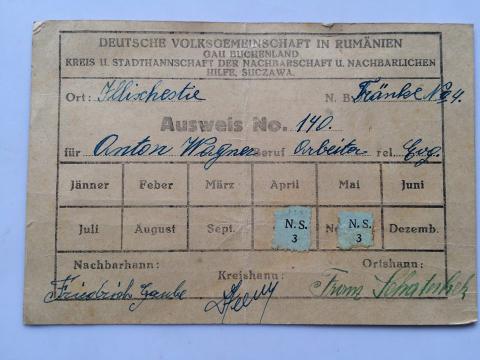 DEUTSCHE VOLKSGEMEINSCHAFT IN RUMÄNIEN
GAU BUCHENLAND
KREIS U. STADTHANNSCHAFT DER NACHBARSCHAFT U. NACHBARLICHEN
HILFE, SUCZAWA.
Ort: Illischestie N. B. Tränke No 4.
Ausweis No. 140.
für Anton Wagner Beruf Arbeiter rel. Evg.
Jänner Feber März April Mai Juni
Juli August Sept. N. S. 3 N. S. 3 Dezemb.
Nachbarhann: Kreishann: Ortshann:
Friedrich Gaube